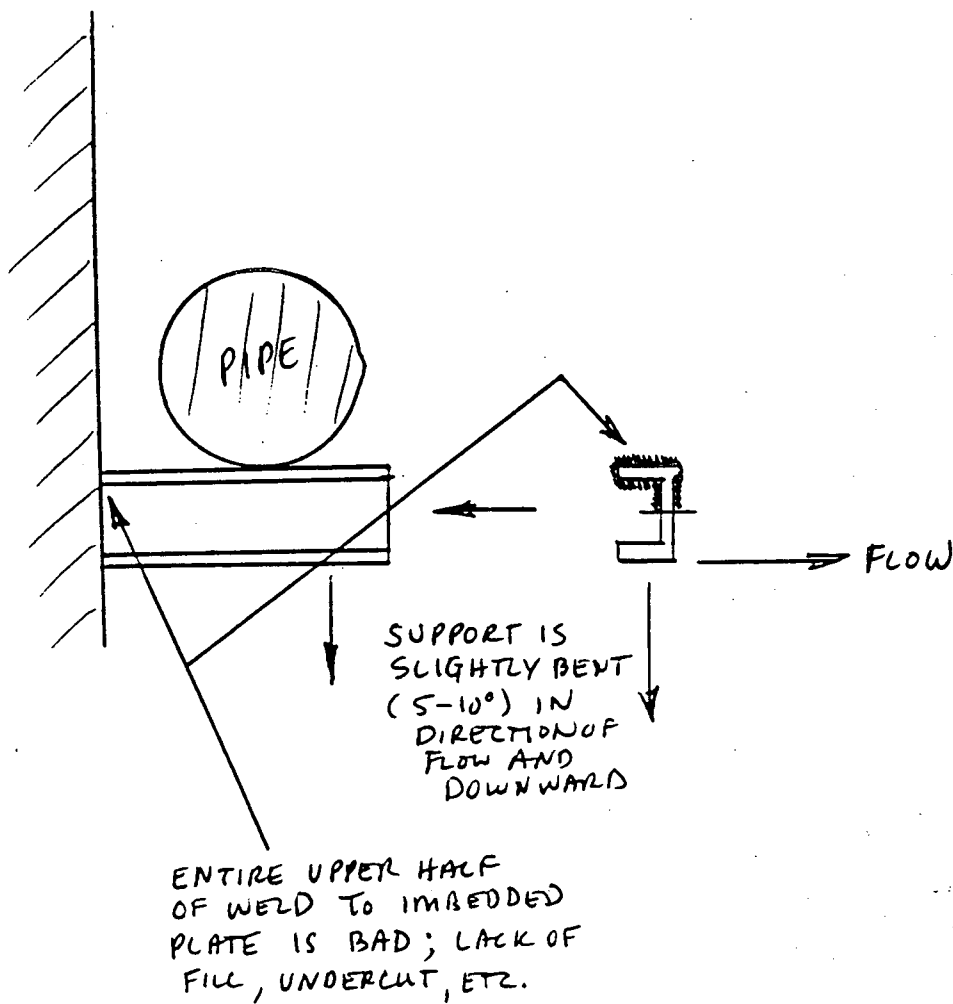 PIPE
FLOW
SUPPORT IS
SLIGHTLY BENT
(5-10°) IN
DIRECTION OF
FLOW AND
DOWNWARD
ENTIRE UPPER HALF
OF WELD TO IMBEDDED
PLATE IS BAD; LACK OF
FILL, UNDERCUT, ETC.